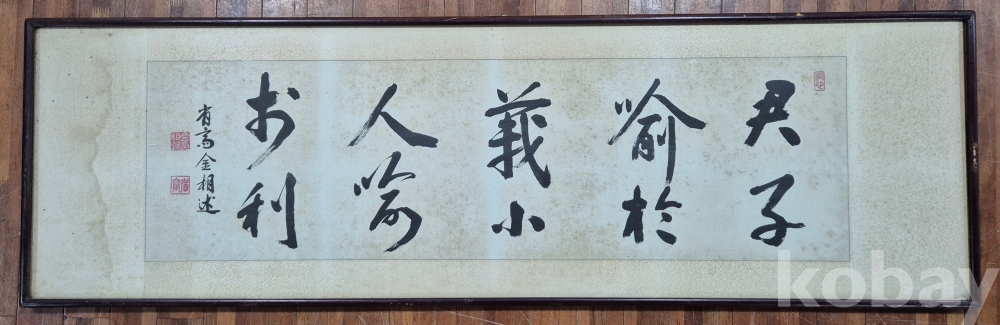 君子
喻於
義小
人喻
於利
省齋金相述
kobay